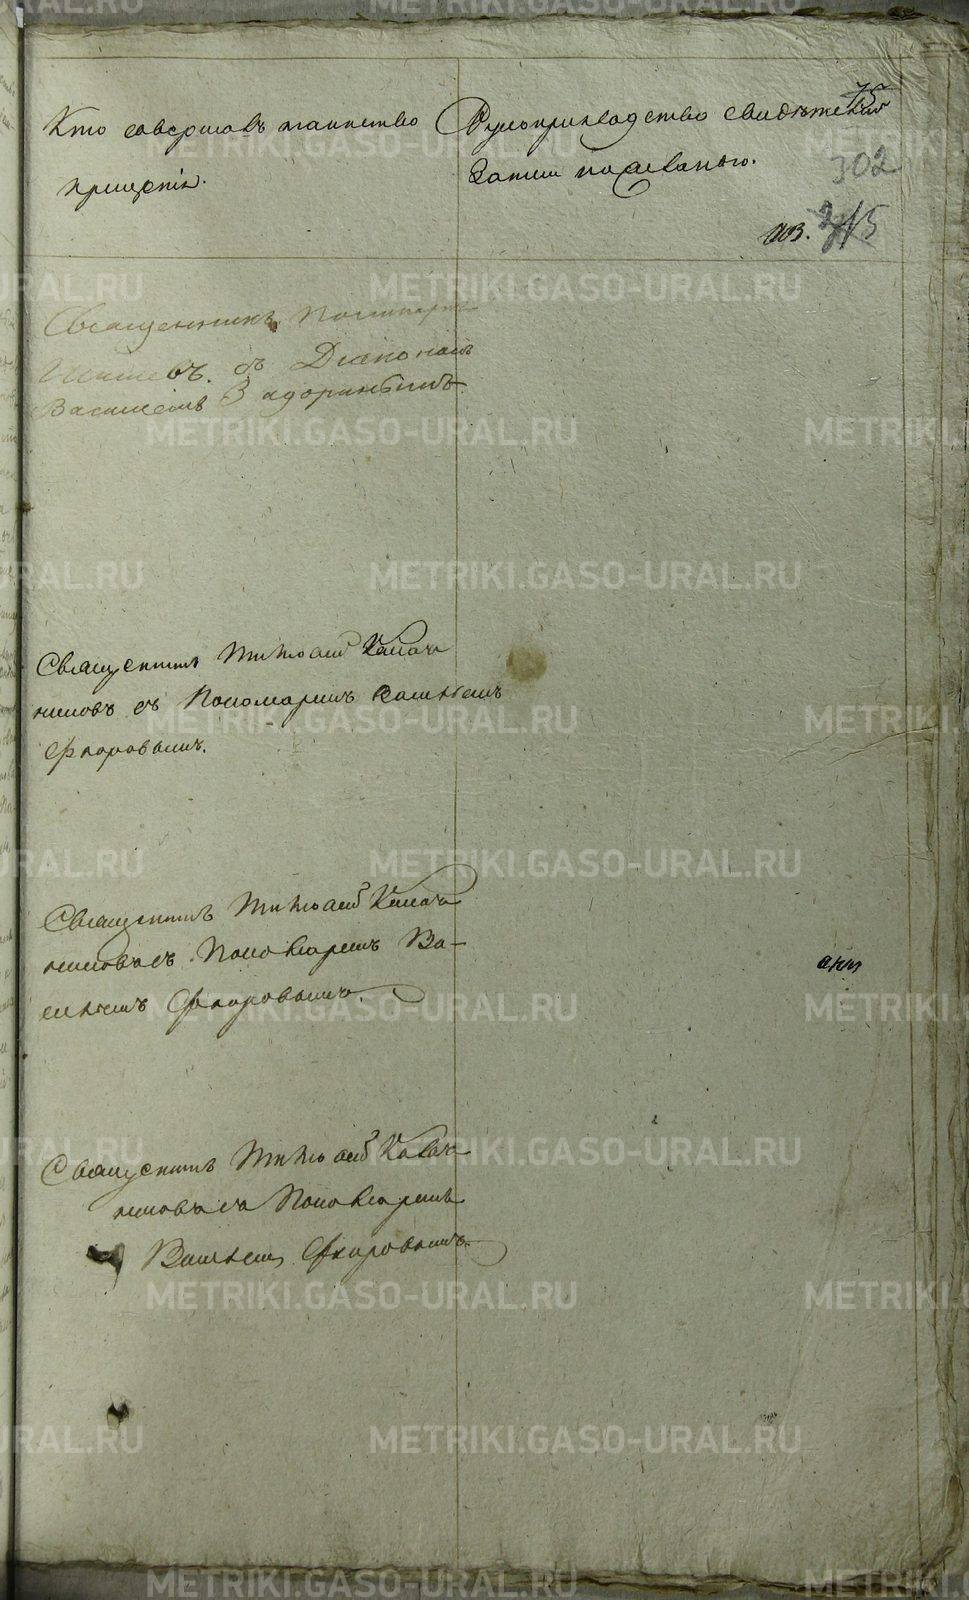 75
Кто совершалъ таинство
крещенія.
Рукоприкладство свидѣтелей
записи по желанью.
302
315
Священникъ
съ Діакономъ
Василіемъ Задоринымъ
Священникъ Тимоѳей Калач
никовъ съ Пономаремъ Васильемъ
Флоровымъ.
Священникъ Тимоѳей Калача
никовъ съ Пономаремъ Ва-
сильемъ Флоровымъ.
Священникъ Тимоѳей Калач
никовъ съ Пономаремъ
Васильемъ Флоровымъ.
METRIKI.GASO-URAL.RU